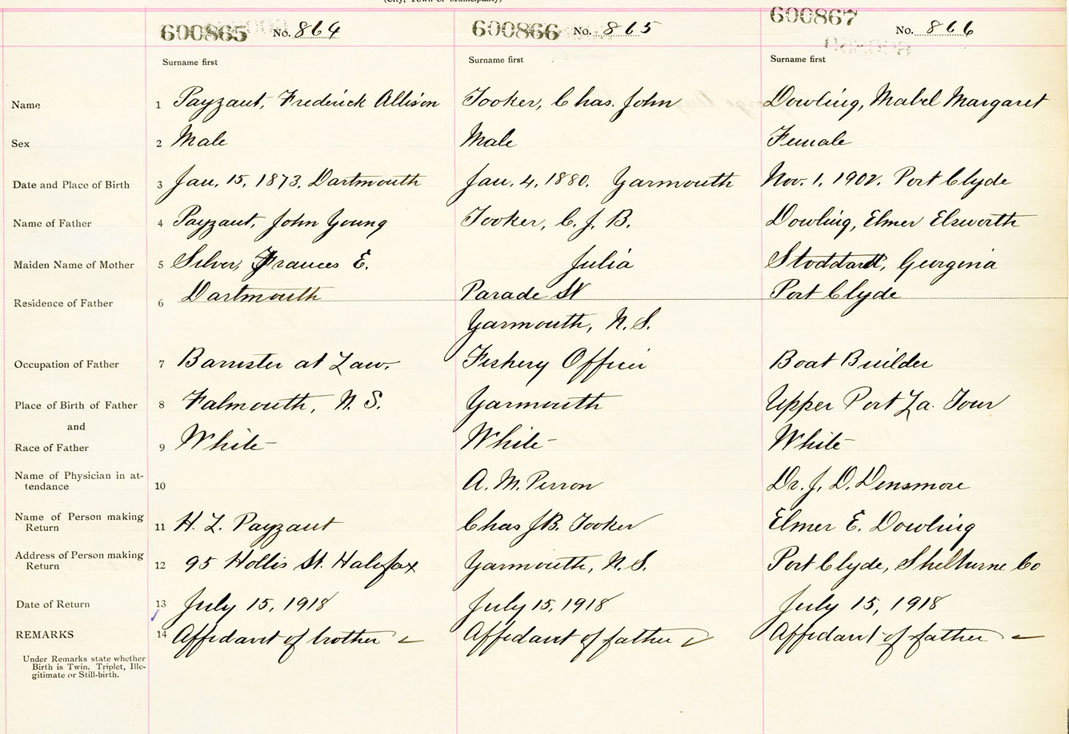 (City, Town or Municipality)
600865 No. 864 600866 No. 865 600867 No. 866
Surname first Surname first Surname first
Name 1 Payzant, Frederick Allison Tooker, Chas. John Dowling, Mabel Margaret
Sex 2 Male Male Female
Date and Place of Birth 3 Jan. 15, 1873. Dartmouth Jan. 4, 1880. Yarmouth Nov. 1, 1902. Port Clyde
Name of Father 4 Payzant, John Young Tooker, C. J. B. Dowling, Elmer Elsworth
Maiden Name of Mother 5 Silver, Frances E. Julia Stoddart, Georgina
Residence of Father 6 Dartmouth Parade St Port Clyde
Yarmouth, N. S.
Occupation of Father 7 Barrister at Law. Fishery Officer Boat Builder
Place of Birth of Father 8 Falmouth, N. S. Yarmouth Upper Port La Tour
and
Race of Father 9 White White White
Name of Physician in at-
tendance 10 A. M. Perron Dr. J. D. Densmore
Name of Person making
Return 11 H. L. Payzant Chas J.B. Tooker Elmer E. Dowling
Address of Person making
Return 12 95 Hollis St. Halifax Yarmouth, N. S. Port Clyde, Shelburne Co
Date of Return 13 July 15, 1918 July 15, 1918 July 15, 1918
REMARKS 14 Affidavit of brother Affidavit of father Affidavit of father
Under Remarks state whether
Birth is Twin, Triplet, Ille-
gitimate or Still-birth.